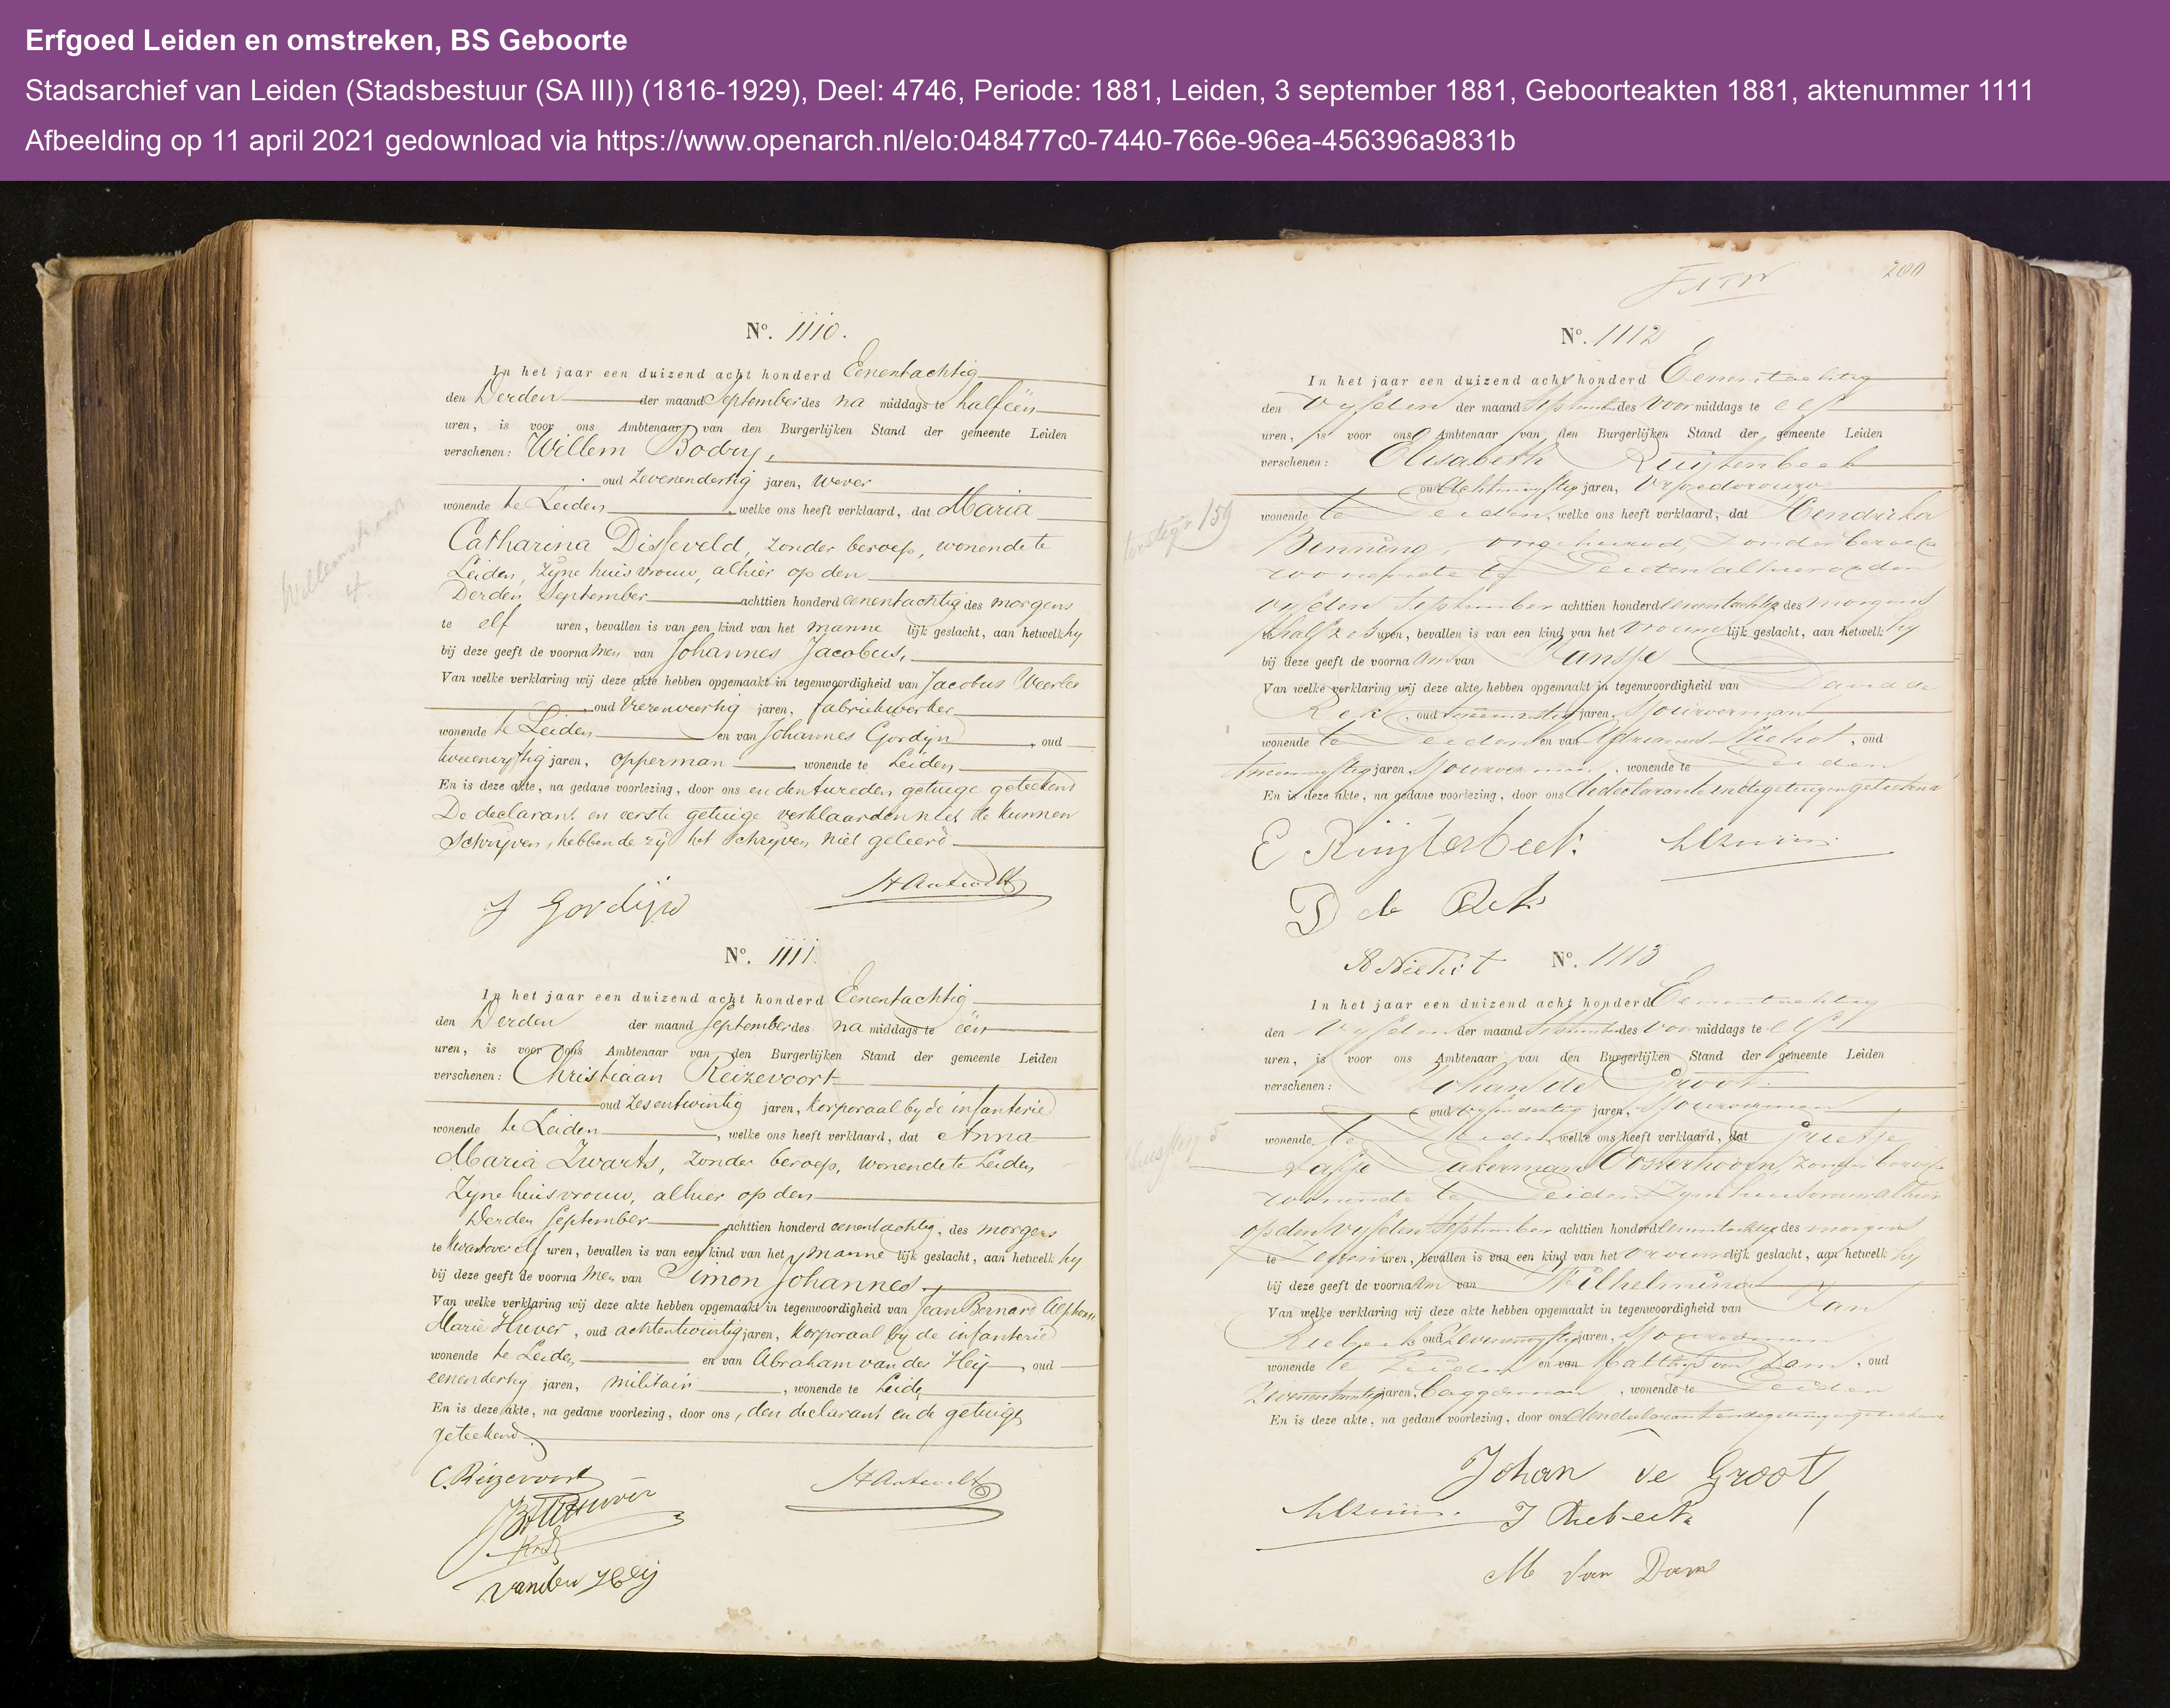 Erfgoed Leiden en omstreken, BS Geboorte
Stadsarchief van Leiden (Stadsbestuur (SA III)) (1816-1929), Deel: 4746, Periode: 1881, Leiden, 3 september 1881, Geboorteakten 1881, aktenummer 1111
Afbeelding op 11 april 2021 gedownload via https://www.openarch.nl/elo:048477c0-7440-766e-96ea-456396a9831b
No. 1110.
In het jaar een duizend acht honderd Eenentachtig
den Derden der maand September des na middags te half een
uren, is voor ons Ambtenaar van den Burgerlijken Stand der gemeente Leiden
verschenen: Willem Bodry,
oud zevenendertig jaren, wever
wonende te Leiden, welke ons heeft verklaard, dat Maria
Catharina Disseveld, zonder beroep, wonende te
Leiden, zyne huisvrouw, alhier op den
Derden September achttien honderd eenentachtig des morgens
te elf uren, bevallen is van een kind van het manne lijk geslacht, aan hetwelk hy
bij deze geeft de voorna men van Johannes Jacobus,
Van welke verklaring wij deze akte hebben opgemaakt in tegenwoordigheid van Jacobus
oud vierenveertig jaren, fabriekwerker
wonende te Leiden en van Johannes Gordyn, oud
tweenvyftig jaren, opperman, wonende te Leiden
En is deze akte, na gedane voorlezing, door ons en den tweeden getuige geteekend
De declarant en eerste getuige verklaarden niet te kunnen
schryven, hebbende zy het schryven niet geleerd
J Gordijn
No. 1111.
In het jaar een duizend acht honderd Eenentachtig
den Derden der maand September des na middags te één
uren, is voor ons Ambtenaar van den Burgerlijken Stand der gemeente Leiden
verschenen: Christiaan Reizevoort
oud zesentwintig jaren, korporaal by de infanterie
wonende te Leiden, welke ons heeft verklaard, dat Anna
Maria Zwarts, zonder beroep, wonende te Leiden
zyne huisvrouw, alhier op den
Derden September achttien honderd eenentachtig, des morgens
te kwart over elf uren, bevallen is van een kind van het manne lijk geslacht, aan hetwelk hy
bij deze geeft de voorna men van Simon Johannes
Van welke verklaring wij deze akte hebben opgemaakt in tegenwoordigheid van Jean Bernard Alphons
Marie Huver, oud achtentwintig jaren, korporaal bij de infanterie
wonende te Leiden en van Abraham van der Heij, oud
eenendertig jaren, militair, wonende te Leiden
En is deze akte, na gedane voorlezing, door ons, den declarant en de getuigen
geteekend
C. Reizevoort
van der Heij
200
No. 1112
In het jaar een duizend acht honderd Eenentachtig
den vyfden der maand September des voor middags te elf
uren, is voor ons Ambtenaar van den Burgerlijken Stand der gemeente Leiden
verschenen: Elisabeth Ruijtenbeek
oud achtenvyftig jaren, Vroedvrouw
wonende te Leiden, welke ons heeft verklaard, dat Hendrika
Benning, ongehuwd, zonder beroep
wonende te Leiden alhier op den
vyfden September achttien honderd eenentachtig des morgens
te half zes uren, bevallen is van een kind van het vrouwe lijk geslacht, aan hetwelk hy
bij deze geeft de voorna am van Jansje
Van welke verklaring wij deze akte hebben opgemaakt in tegenwoordigheid van David de
oud jaren, sjouwerman
wonende te Leiden en van Adrianus, oud
jaren, sjouwerman, wonende te Leiden
En is deze akte, na gedane voorlezing, door ons de declarante en de getuigen geteekend
No. 1113
In het jaar een duizend acht honderd Eenentachtig
den vyfden der maand September des voor middags te elf
uren, is voor ons Ambtenaar van den Burgerlijken Stand der gemeente Leiden
verschenen: Johan de Groot
oud jaren, sjouwerman
wonende te Leiden, welke ons heeft verklaard, dat Grietje
Akerman Oosterhoorn, zonder beroep
wonende te Leiden zyne huisvrouw alhier
op den vyfden September achttien honderd eenentachtig des morgens
te uren, bevallen is van een kind van het vrouwe lijk geslacht, aan hetwelk hy
bij deze geeft de voorna am van Wilhelmina
Van welke verklaring wij deze akte hebben opgemaakt in tegenwoordigheid van Jan
oud zevenenvyftig jaren, sjouwerman
wonende te Leiden en van Matthys van Dam, oud
jaren, baggerman, wonende te Leiden
En is deze akte, na gedane voorlezing, door ons den declarant en de getuigen geteekend
Johan de Groot
M van Dam